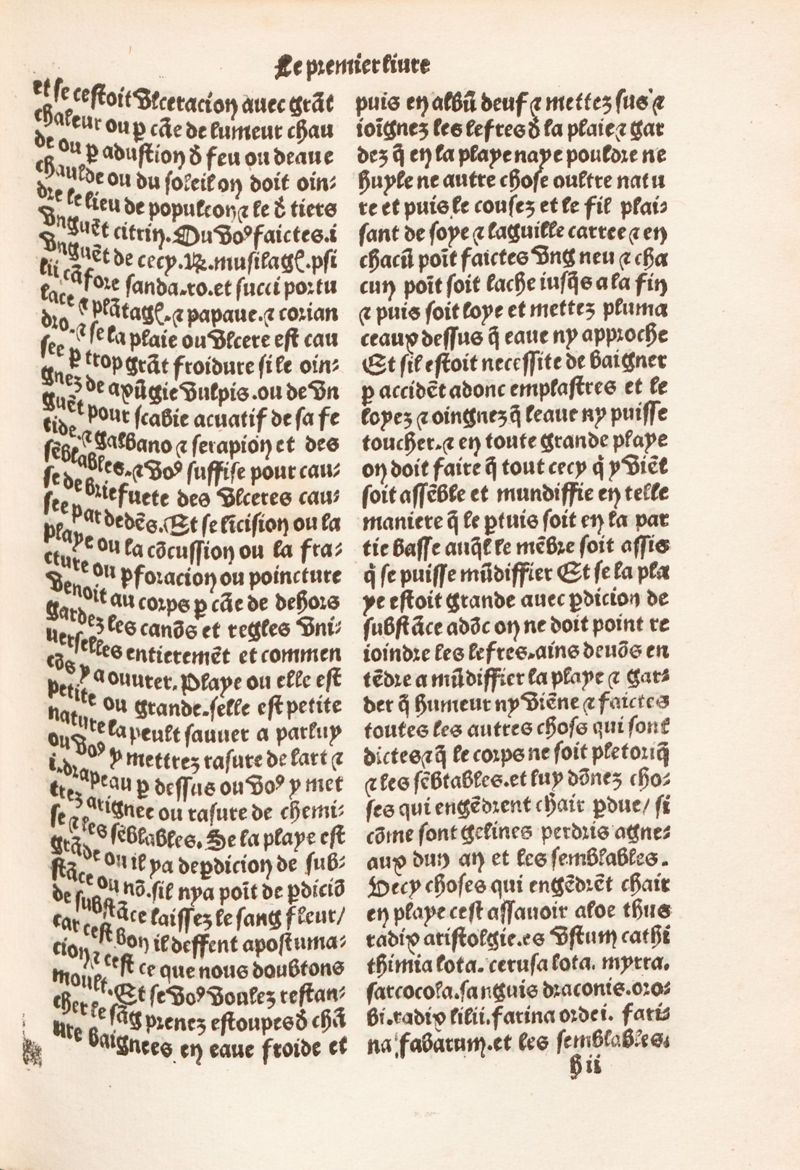 Le premier liure
et se cestoit Vlceracion auec grãt
chaleur ou ꝑ cãe de lumeur chau
de ou ꝑ adustion ď feu ou deaue
chaulde ou du soleil on doit oin⸗
dre le lieu de populeon ⁊ le ď tiers
Vnguẽt citrin. Ou Voꝰ faictes .i
Vnguẽt de cecy. ℞. musilagꝭ. psi
lii cãfore sanda. ro. et succi portu
lace ⁊ plãtagꝭ. ⁊ papaue. ⁊ corian
dro. ⁊ se la plaie ou Vlcere est cau
see ꝑ trop grãt froidure si le oin⸗
gnez de axũgie Vulpis. ou de Vn
guẽt pour scabie acuatif de sa fe
tide. ⁊ galbano ⁊ serapion et des
sẽblables. ⁊ Voꝰ suffise pour cau⸗
se de briefuete des Vlceres cau⸗
see par dedẽs. Et se lĩcision ou la
playe ou la cõcussion ou la fra⸗
cture ou ꝑforacion ou poincture
Venoit au corps ꝑ cãe de dehors
gardez les canõs et regles Vni⸗
uerselles entieremẽt et commen
cõs y a ouurer. Playe ou elle est
petite ou grande. selle est petite
nature la peult sauuer a par luy
ou Voꝰ y mettrez rasure de lart ⁊
i. drapeau ꝑ dessus ou Voꝰ y met
trez arignee ou rasure de chemi⸗
se ⁊ les sẽblables. Se la playe est
grãde ou il ya de ꝑdicion de sub⸗
stãce ou nõ. sil nya poĩt de ꝑdiciõ
de substãce laissez le sang fleur/
car cest bon il deffent apostuma⸗
cion ⁊ cest ce que nous doubtons
moult. Et se Voꝰ Voulez restan⸗
cher le sãg prenez estoupes ď chã
ure baignees en eaue froide et
puis en albũ deuf ⁊ mettez sus ⁊
ioĩgnez les lefres ď la plaie ⁊ gar
dez q̃ en la playe naye pouldre ne
huyle ne autre chose oultre natu
re et puis le cousez et le fil plai⸗
sant de soye ⁊ laguille carree ⁊ en
chacũ poĩt faictes Vng neu ⁊ cha
cun poĩt soit lache iusq̃s a la fin
⁊ puis soit loye et mettez pluma
ceaux dessus q̃ eaue ny approche
Et sil estoit necessite de baigner
ꝑ accidẽt adonc emplastres et le
loyez ⁊ oingnez q̃ leaue ny puisse
toucher. ⁊ en toute grande playe
on doit faire q̃ tout cecy q̇ y Viẽt
soit assẽble et mundiffie en telle
maniere q̃ le ꝑtuis soit en la par
tie basse auq̃l le mẽbre soit assis
q̇ se puisse mũdiffier Et se la pla
ye estoit grande auec ꝑdicion de
substãce adõc on ne doit point re
ioindre les lefres. ains deuõs en
tẽdre a mũdiffier la playe ⁊ gar⸗
der q̃ humeur ny Viẽne ⁊ faictes
toutes les autres choses qui sont
dictes ⁊ q̃ le corps ne soit pletoriq̃
⁊ les sẽblables. et luy dõnez cho⸗
ses qui engẽdrent chair ꝑdue/ si
cõme sont gelines perdris agne⸗
aux dun an et les semblables.
Decy choses qui engẽdrẽt chair
en playe cest assauoir aloe thus
radix aristolgie. es Vstum cathi
thimia lota. cerusa lota. myrra.
sarcocola. sanguis draconis. oro⸗
bi. radix lilii. farina ordei. fari⸗
na fabarum. et les semblables.
h ii